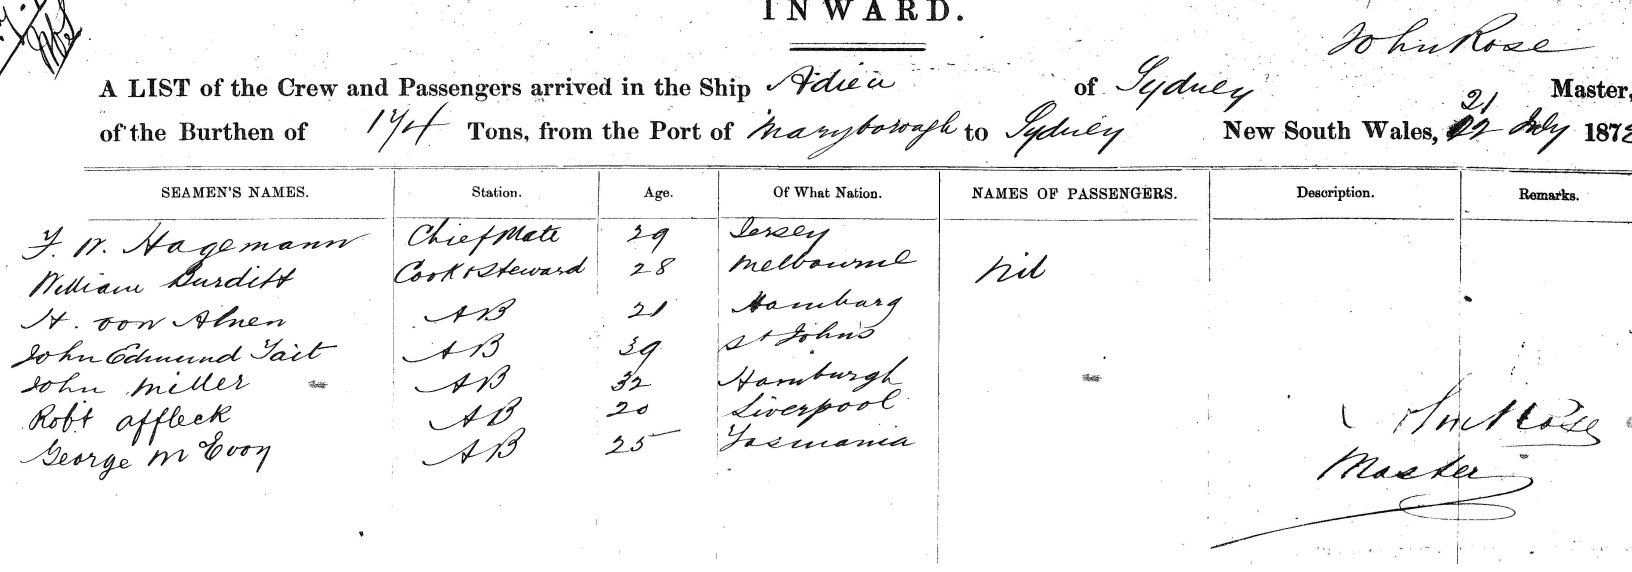 INWARD.
John Rose
A LIST of the Crew and Passengers arrived in the Ship Adieu of Sydney Master,
of the Burthen of 174 Tons, from the Port of Maryborough to Sydney New South Wales, 21 July 187
SEAMEN'S NAMES. Station. Age. Of What Nation. NAMES OF PASSENGERS. Description. Remarks.
F. W. Hagemann Chief Mate 29 Jersey
William Burditt Cook & Steward 28 Melbourne Nil
H. von Ahnen AB 21 Hamburg
John Edmund Tait AB 39 St Johns
John Miller AB 32 Hamburgh
Robt Affleck AB 20 Liverpool
George McEvoy AB 25 Tasmania
Jno Rose
Master